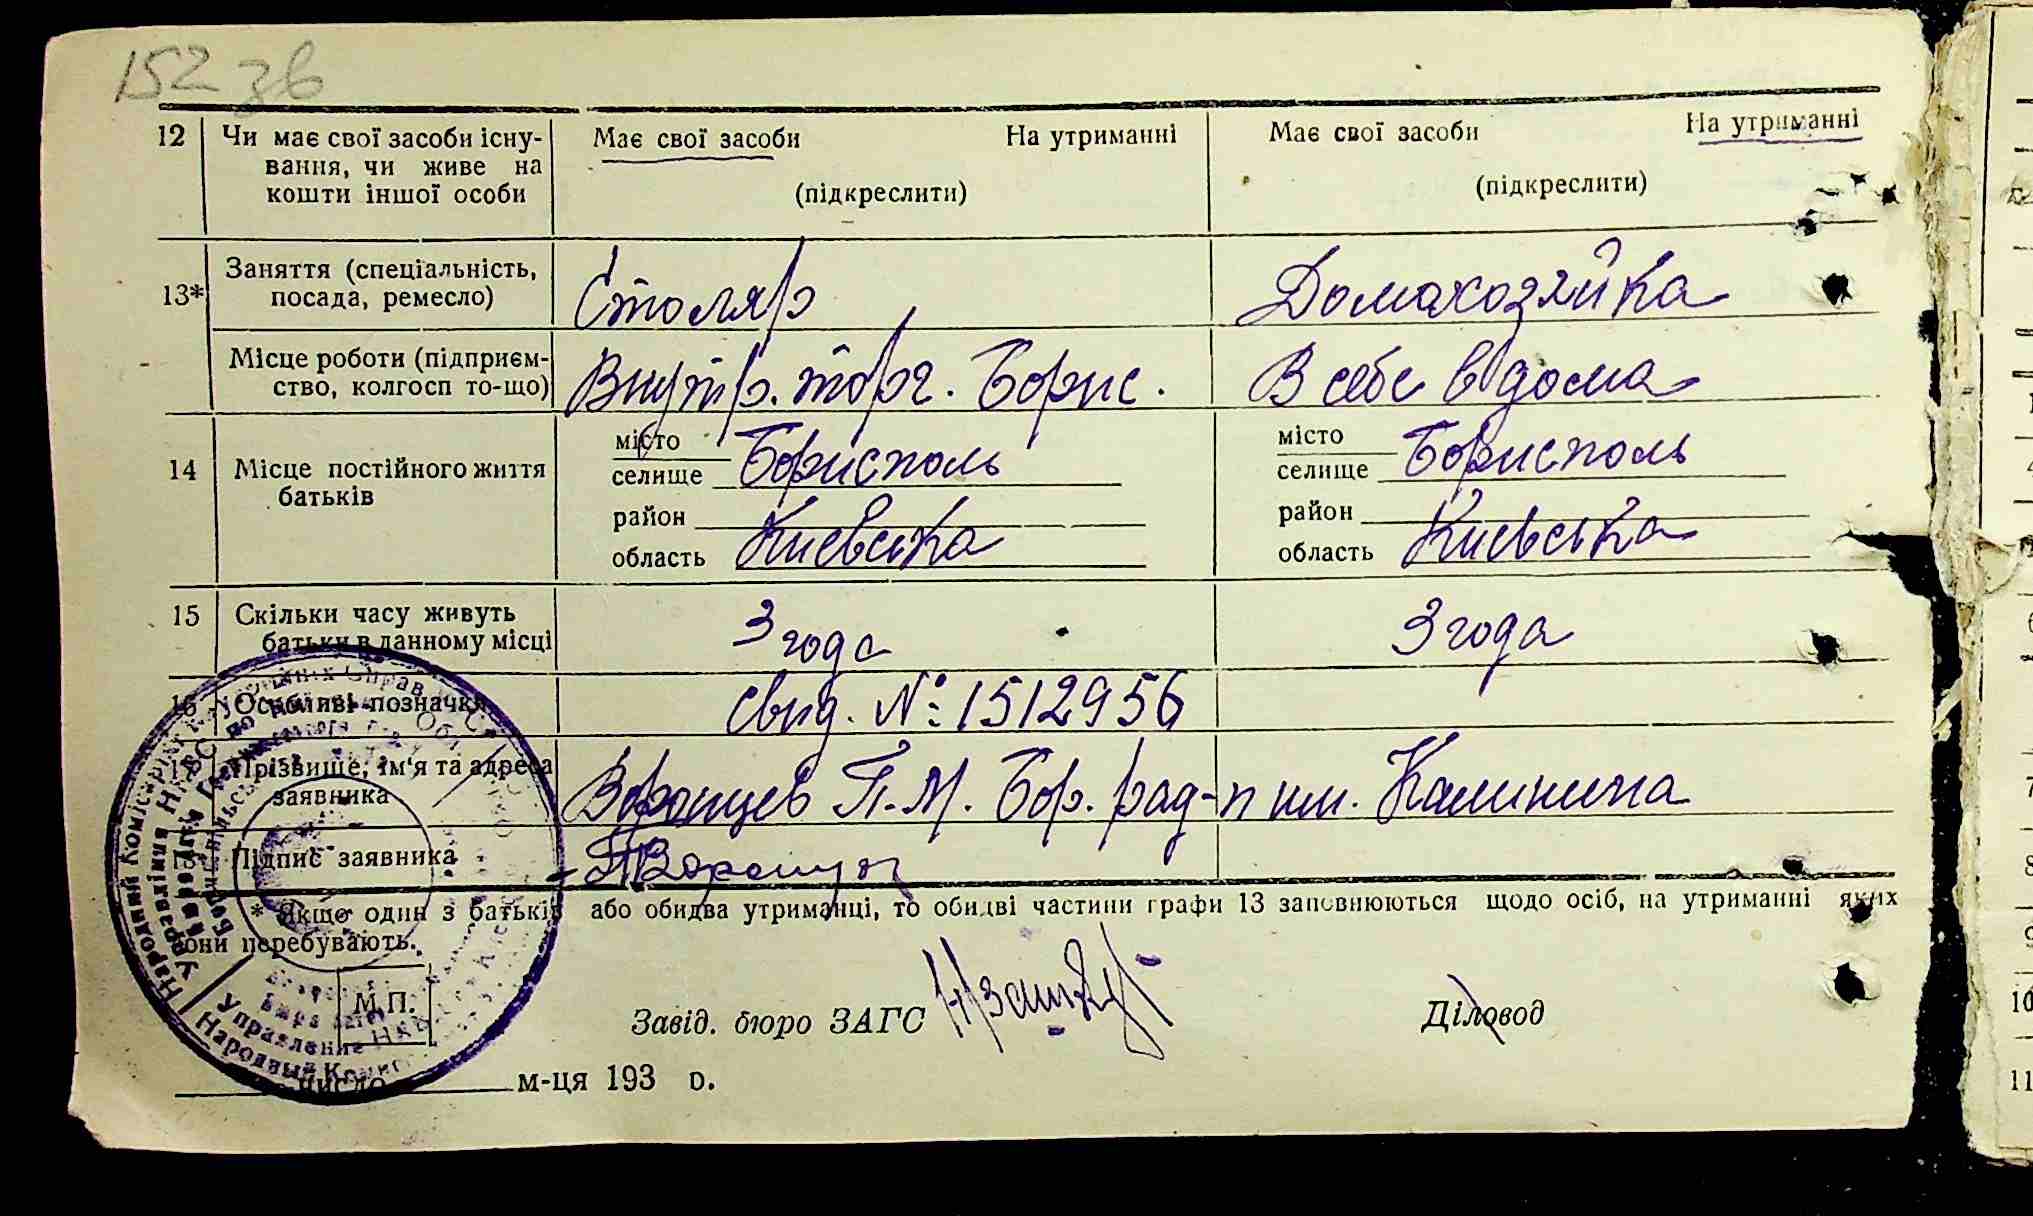 152 зв
12 Чи має свої засоби існу- Має свої засоби На утриманні Має свої засоби На утриманні
вання, чи живе на
кошти іншої особи (підкреслити) (підкреслити)
13* Заняття (спеціальність, Столяр Домахозяйка
посада, ремесло)
Місце роботи (підприєм- Внутр. торг. Борис. В себе вдома
ство, колгосп то-що)
місто місто
14 Місце постійного життя селище Борисполь селище Борисполь
батьків
район район
область Киевська область Киевська
15 Скільки часу живуть 3 года 3 года
батьки в данному місці
16 Особливі позначки свид. №: 1512956
17 Прізвище, ім'я та адреса Воронцев П. М. Бор. рад-п им. Калинина
заявника
Підпис заявника
* Якщо один з батьків або обидва утриманці, то обидві частини графи 13 заповнюються щодо осіб, на утриманні яких
вони перебувають.
М.П.
Завід. бюро ЗАГС Діловод
число м-ця 193 р.
Народний Комісаріат Внутрішніх Справ
Управління НКВС по Київській Обл.
Управление НКВД
Народный Комис